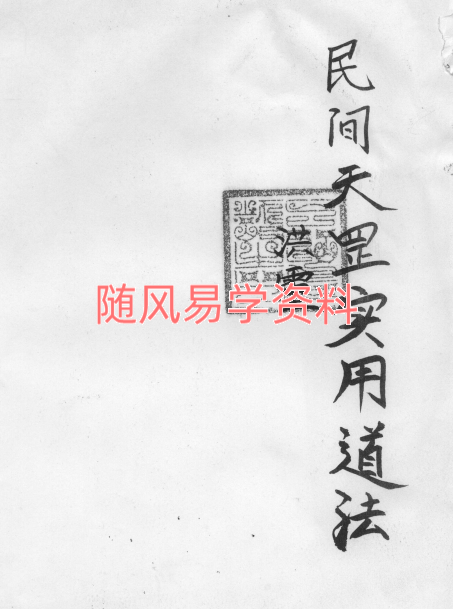 民间天罡实用道法
洪
随风易学资料